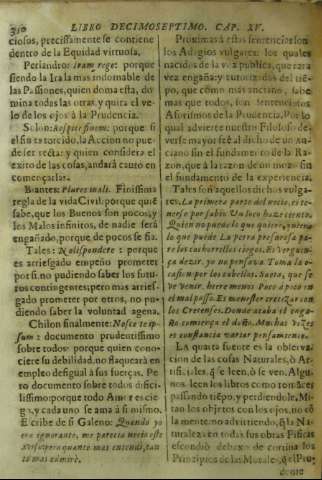 350 LIBRO DECIMOSEPTIMO. CAP. XV.
ciosas, precissamente se contiene
dentro de la Equidad virtuosa.
Periandro: Iram rege: porque
siendo la Ira la mas indomable de
las Passiones, quien doma esta, do
mina todas las otras, y quita el ve-
lo de los ojos à la Prudencia.
Solon: Respice finem: porque si
el fin es torcido, la Accion no pue-
de ser recta: y quien considera el
exito de las cosas, andarà cauto en
començarlas.
Biantes: Plures mali. Finissima
regla de la vida Civil: porque quiē
sabe, que los Buenos son pocos, y
los Malos infinitos, de nadie serà
engañado, porque de pocos se fia.
Tales: Noli spondere: porque
es arriesgado empeño prometer
por si, no pudiendo saber los futu-
ros contingentes; pero mas arries-
gado prometer por otros, no pu-
diendo saber la voluntad agena.
Chilon finalmente: Nosce te ip-
sum: documento prudentissimo
sobre todos: porque quien cono-
ciere su debilidad, no flaquearà en
empleo desigual à sus fuerças. Pe
ro documento sobre todos dificil-
lissimo: porque todo Amor es cie
go, y cada uno se ama à si mismo.
Escribe de si Galeno: Quando yo
era ignorante, me parecia necio este
Nosce; pero quanto mas entendi, tan
to mas admirè.
Proximas à estas sentencias son
los Adagios vulgares: los quales
nacidos de la voz publica, que rara
vez engaña: y autorizados del tiē
po, que como màs anciano, sabe
mas que todos, son sentenciosos
Aforismos de la Prudencia. Por lo
qual advierte nuestro Filosofo de-
verse mayor fè al dicho de un An-
ciano sin el fundamento de la Ra-
zon, que à la razon de un moço sin
el fundamento de la experiencia.
Tales son aquellos dichos vulga-
res. La primera parte del necio, es te-
nerse por sabio. Un loco haze ciento.
Quien no puede lo que quiere, quiera
lo que puede. La perra
los cachorrillos ciegos. Es verguen-
ça dezir, yo no pensava. Toma la o-
casion por los cabellos. Saeta, que se
ve venir, hiere menos. Poco à poco en
el mal passo. Es menester
los Cretenses. Donde acaba el enga-
ño comiença el daño. Muchas vezes
es constancia variar pensamiento.
La quarta fuente es la observa-
cion de las cosas Naturales, ò Ar-
tificiales, q̃ se leen, ò se ven. Algu-
nos leen los libros como
passando tiēpo, y perdiendole. Mi-
ran los objetos con los ojos, no cō
la mente: no advirtiendo, q̃ la Na-
turaleza en todas sus obras Fisicas
escondiò debaxo de cortina los
Principios de las Morales, q̃ el Pru-
dente